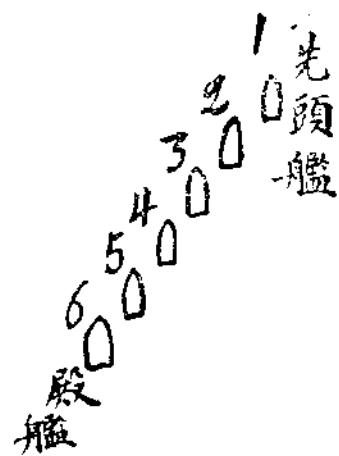 1
先頭艦
2
3
4
5
6
殿艦